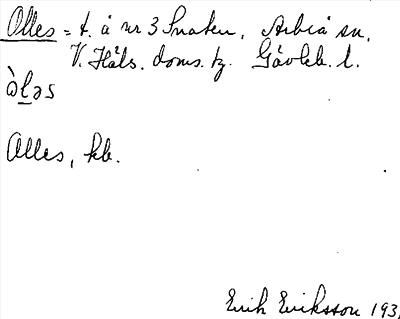 Olles = t. å nr 3 Snaten, Arbrå sn,
V. Häls. doms. tg. Gävleb. l.
òl̲əs
Olles, kb.
Erik Eriksson 193